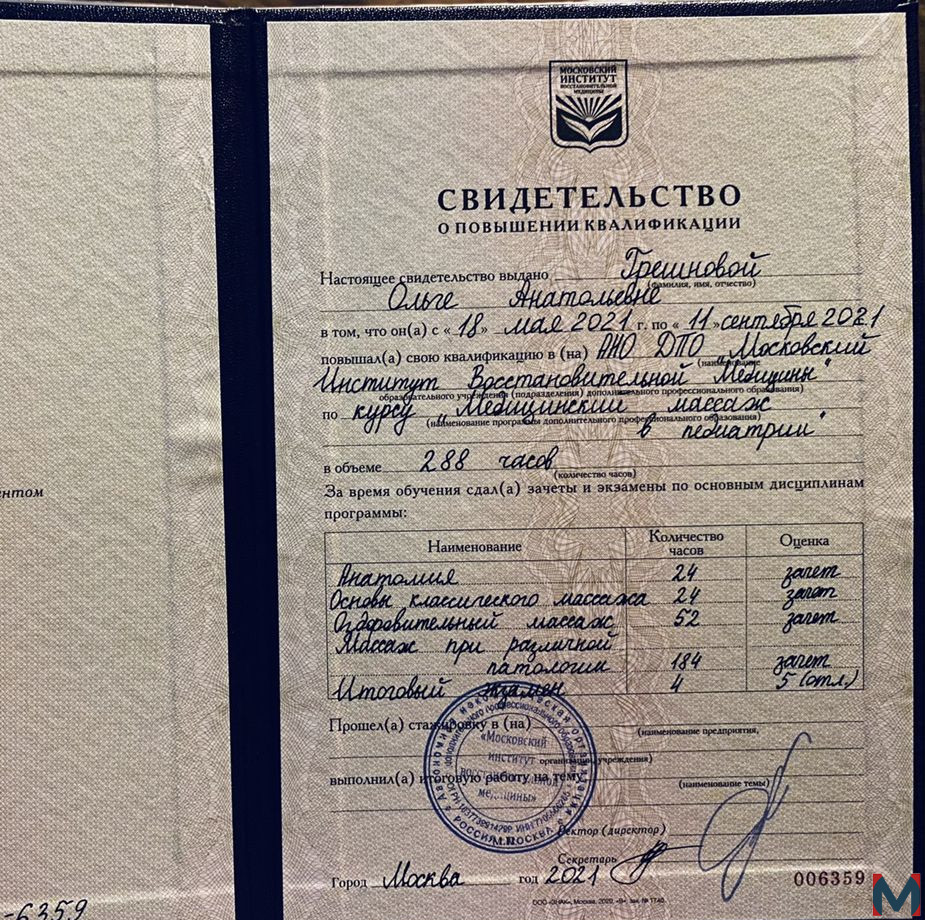 МОСКОВСКИЙ
ИНСТИТУТ
ВОССТАНОВИТЕЛЬНОЙ
МЕДИЦИНЫ
СВИДЕТЕЛЬСТВО
О ПОВЫШЕНИИ КВАЛИФИКАЦИИ
Настоящее свидетельство выдано Грешновой
(фамилия, имя, отчество)
Ольге Анатольевне
в том, что он(а) с «18» мая 2021 г. по «11» сентября 2021
повышал(а) свою квалификацию в (на) АНО ДПО „Московский
(наименование
Институт Восстановительной Медицины"
образовательного учреждения (подразделения) дополнительного профессионального образования)
по курсу „Медицинский массаж
(наименование программы дополнительного профессионального образования)
в педиатрии"
в объеме 288 часов
(количество часов)
За время обучения сдал(а) зачеты и экзамены по основным дисциплинам
программы:
Наименование Количество часов Оценка
Анатомия 24 зачет
Основы классического массажа 24 зачет
Оздоровительный массаж 52 зачет
Массаж при различной
патологии 184 зачет
Итоговый экзамен 4 5 (отл.)
Прошел(а) стажировку в (на)
(наименование предприятия,
организации, учреждения)
выполнил(а) итоговую работу на тему
(наименование темы)
«Московский
институт
восстановительной
медицины»
РОССИЯ МОСКВА
Ректор (директор)
Секретарь
Город Москва год 2021
006359
ентом
-6359
М